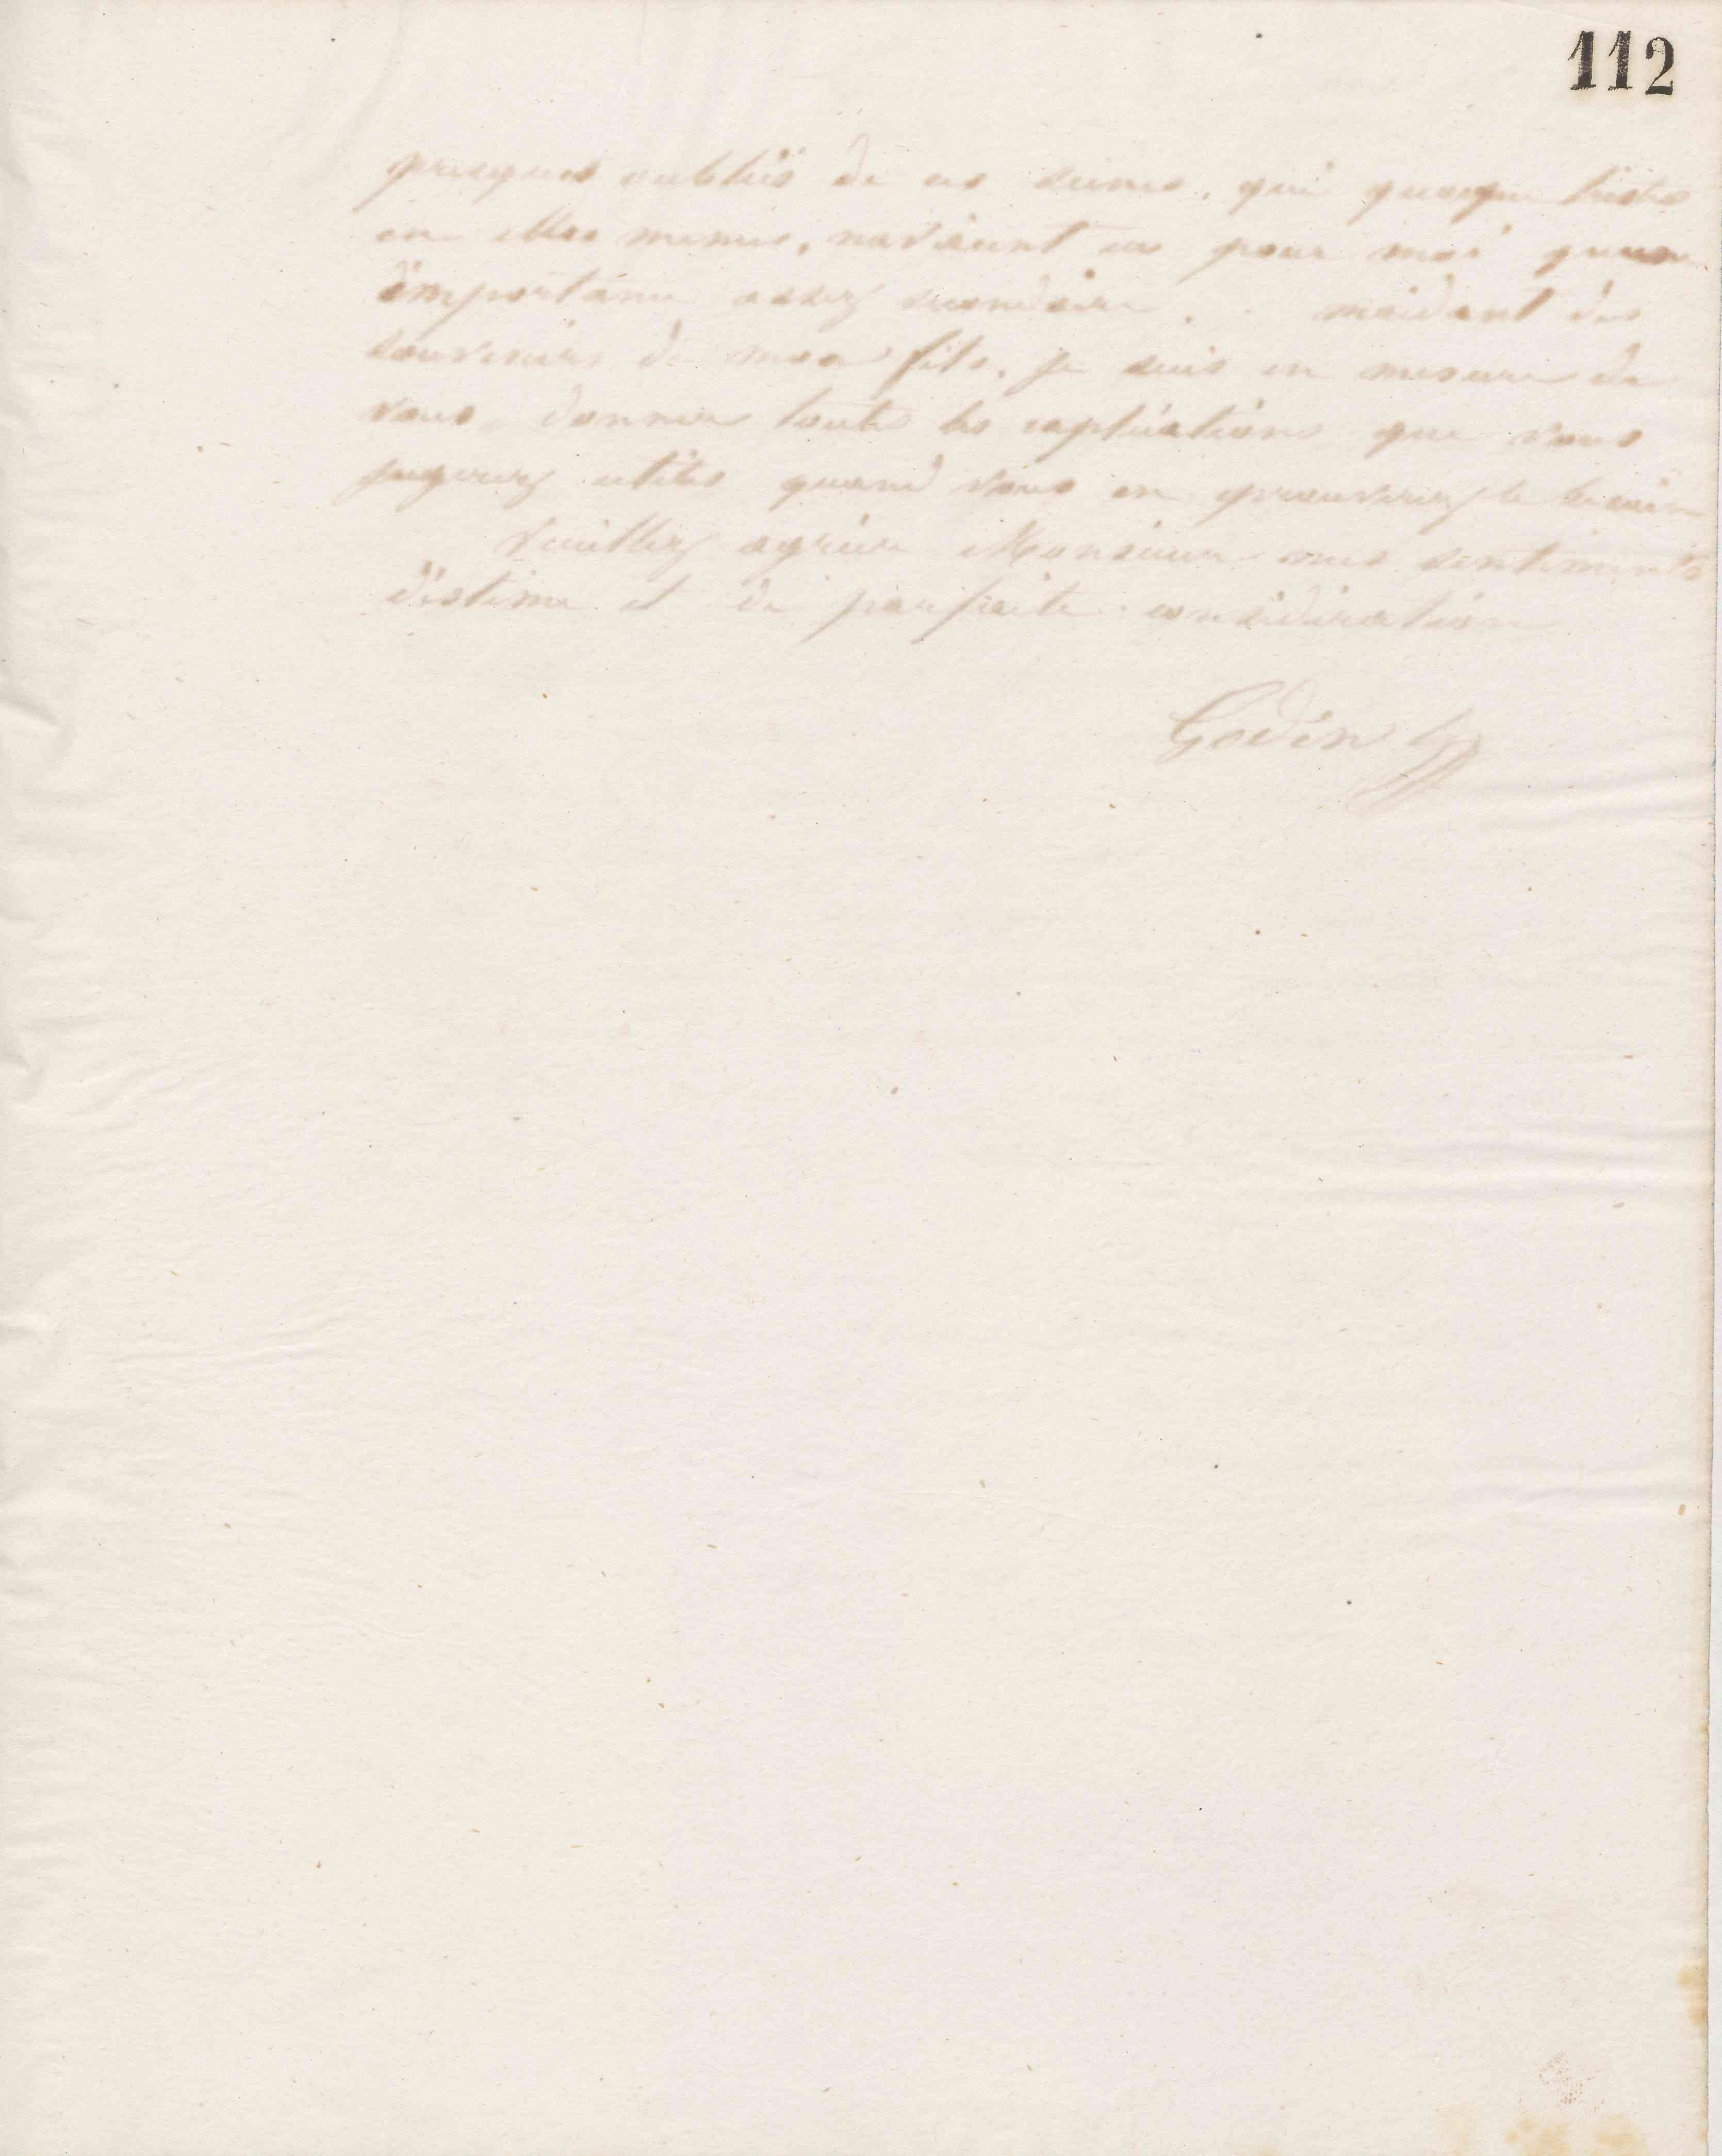 112
presques oubliés de ces scènes, qui quoique tristes
en elles memes, navaient eu pour moi quune
importance assez secondaire. maidant des
souvenirs de mon fils, je suis en mesure de
vous donner toutes les explications que vous
jugerez utiles quand vous en eprouverez le besoin
Veuillez agréer Monsieur mes sentiments
d'estime et de parfaite considération
Godin